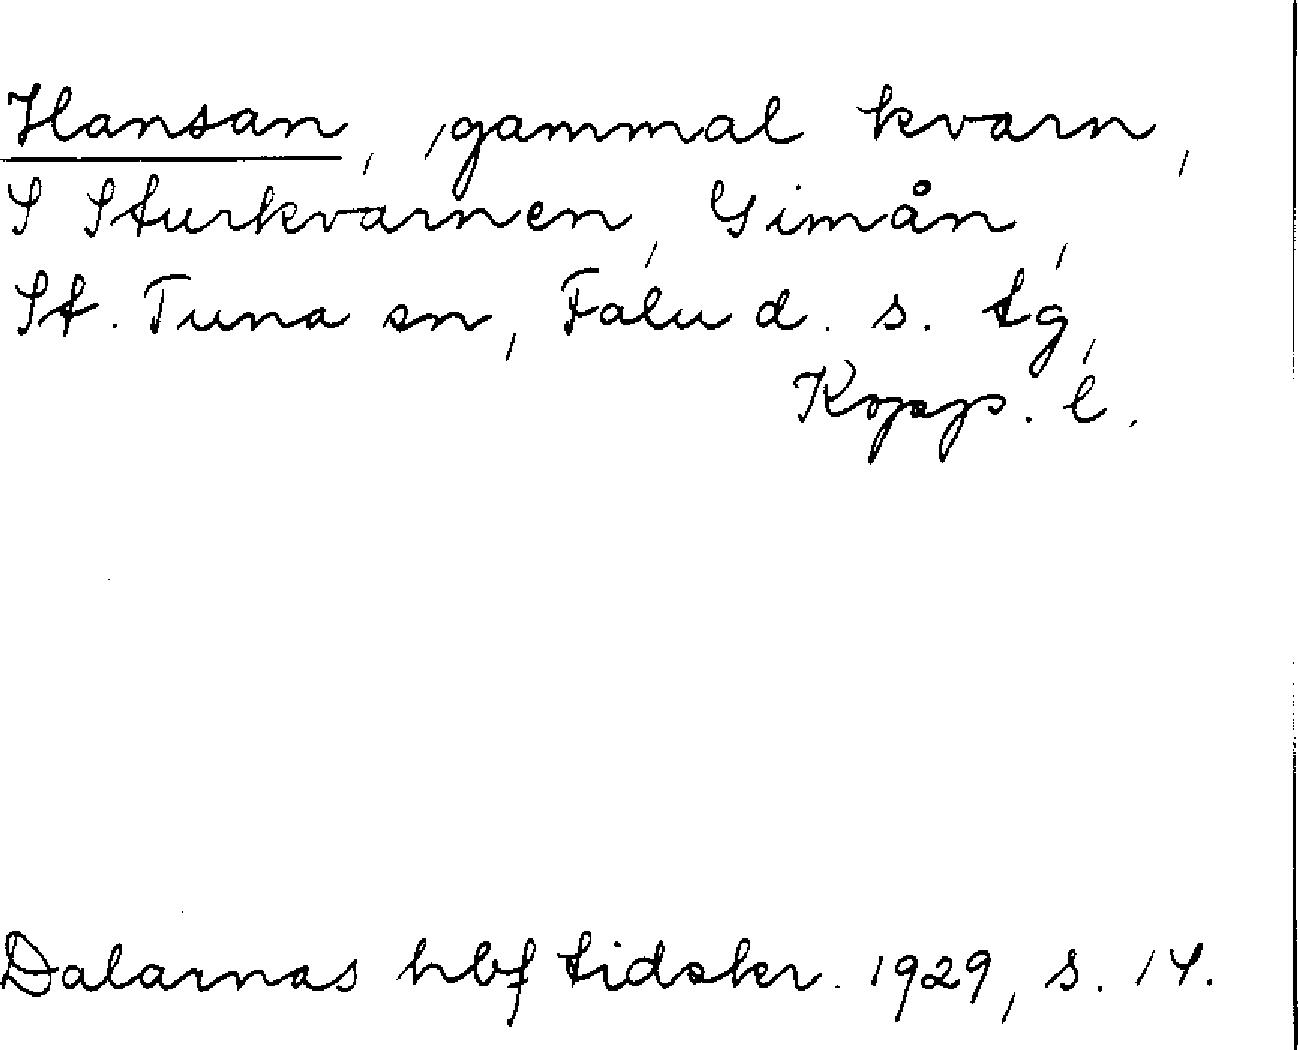 Hansan, gammal kvarn,
S Sturkvarnen, Gimån,
St. Tuna sn, Falu d. s. tg,
Kopp. l.
Dalarnas hbf tidskr. 1929, s. 14.